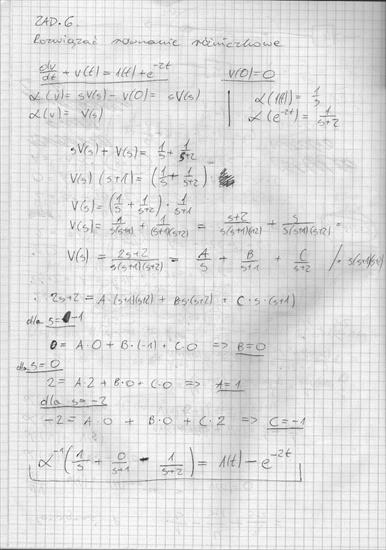 ZAD. 6
Rozwiązać równanie różniczkowe
dv/dt + v(t) = 1(t) + e^{-2t}    v(0) = 0
ℒ(v̇) = sV(s) - v(0) = sV(s)    ℒ(1(t)) = 1/s
ℒ(v) = V(s)    ℒ(e^{-2t}) = 1/(s+2)
sV(s) + V(s) = 1/s + 1/(s+2)
V(s) (s+1) = (1/s + 1/(s+2))
V(s) = (1/s + 1/(s+2)) · 1/(s+1)
V(s) = 1/(s(s+1)) + 1/((s+1)(s+2)) = (s+2)/(s(s+1)(s+2)) + s/(s(s+1)(s+2)) =
V(s) = (2s+2)/(s(s+1)(s+2)) = A/s + B/(s+1) + C/(s+2)
2s+2 = A·(s+1)(s+2) + Bs(s+2) + C·s·(s+1)
dla s = -1
0 = A·0 + B·(-1) + C·0 => B=0
dla s=0
2 = A·2 + B·0 + C·0 => A=1
dla s=-2
-2 = A·0 + B·0 + C·2 => C=-1
ℒ^{-1}(1/s + 0/(s+1) - 1/(s+2)) = 1(t) - e^{-2t}